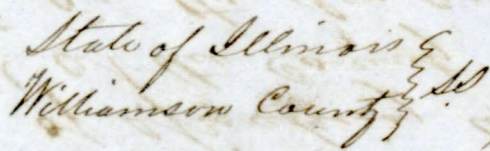 State of Illinois
Williamson County } SS